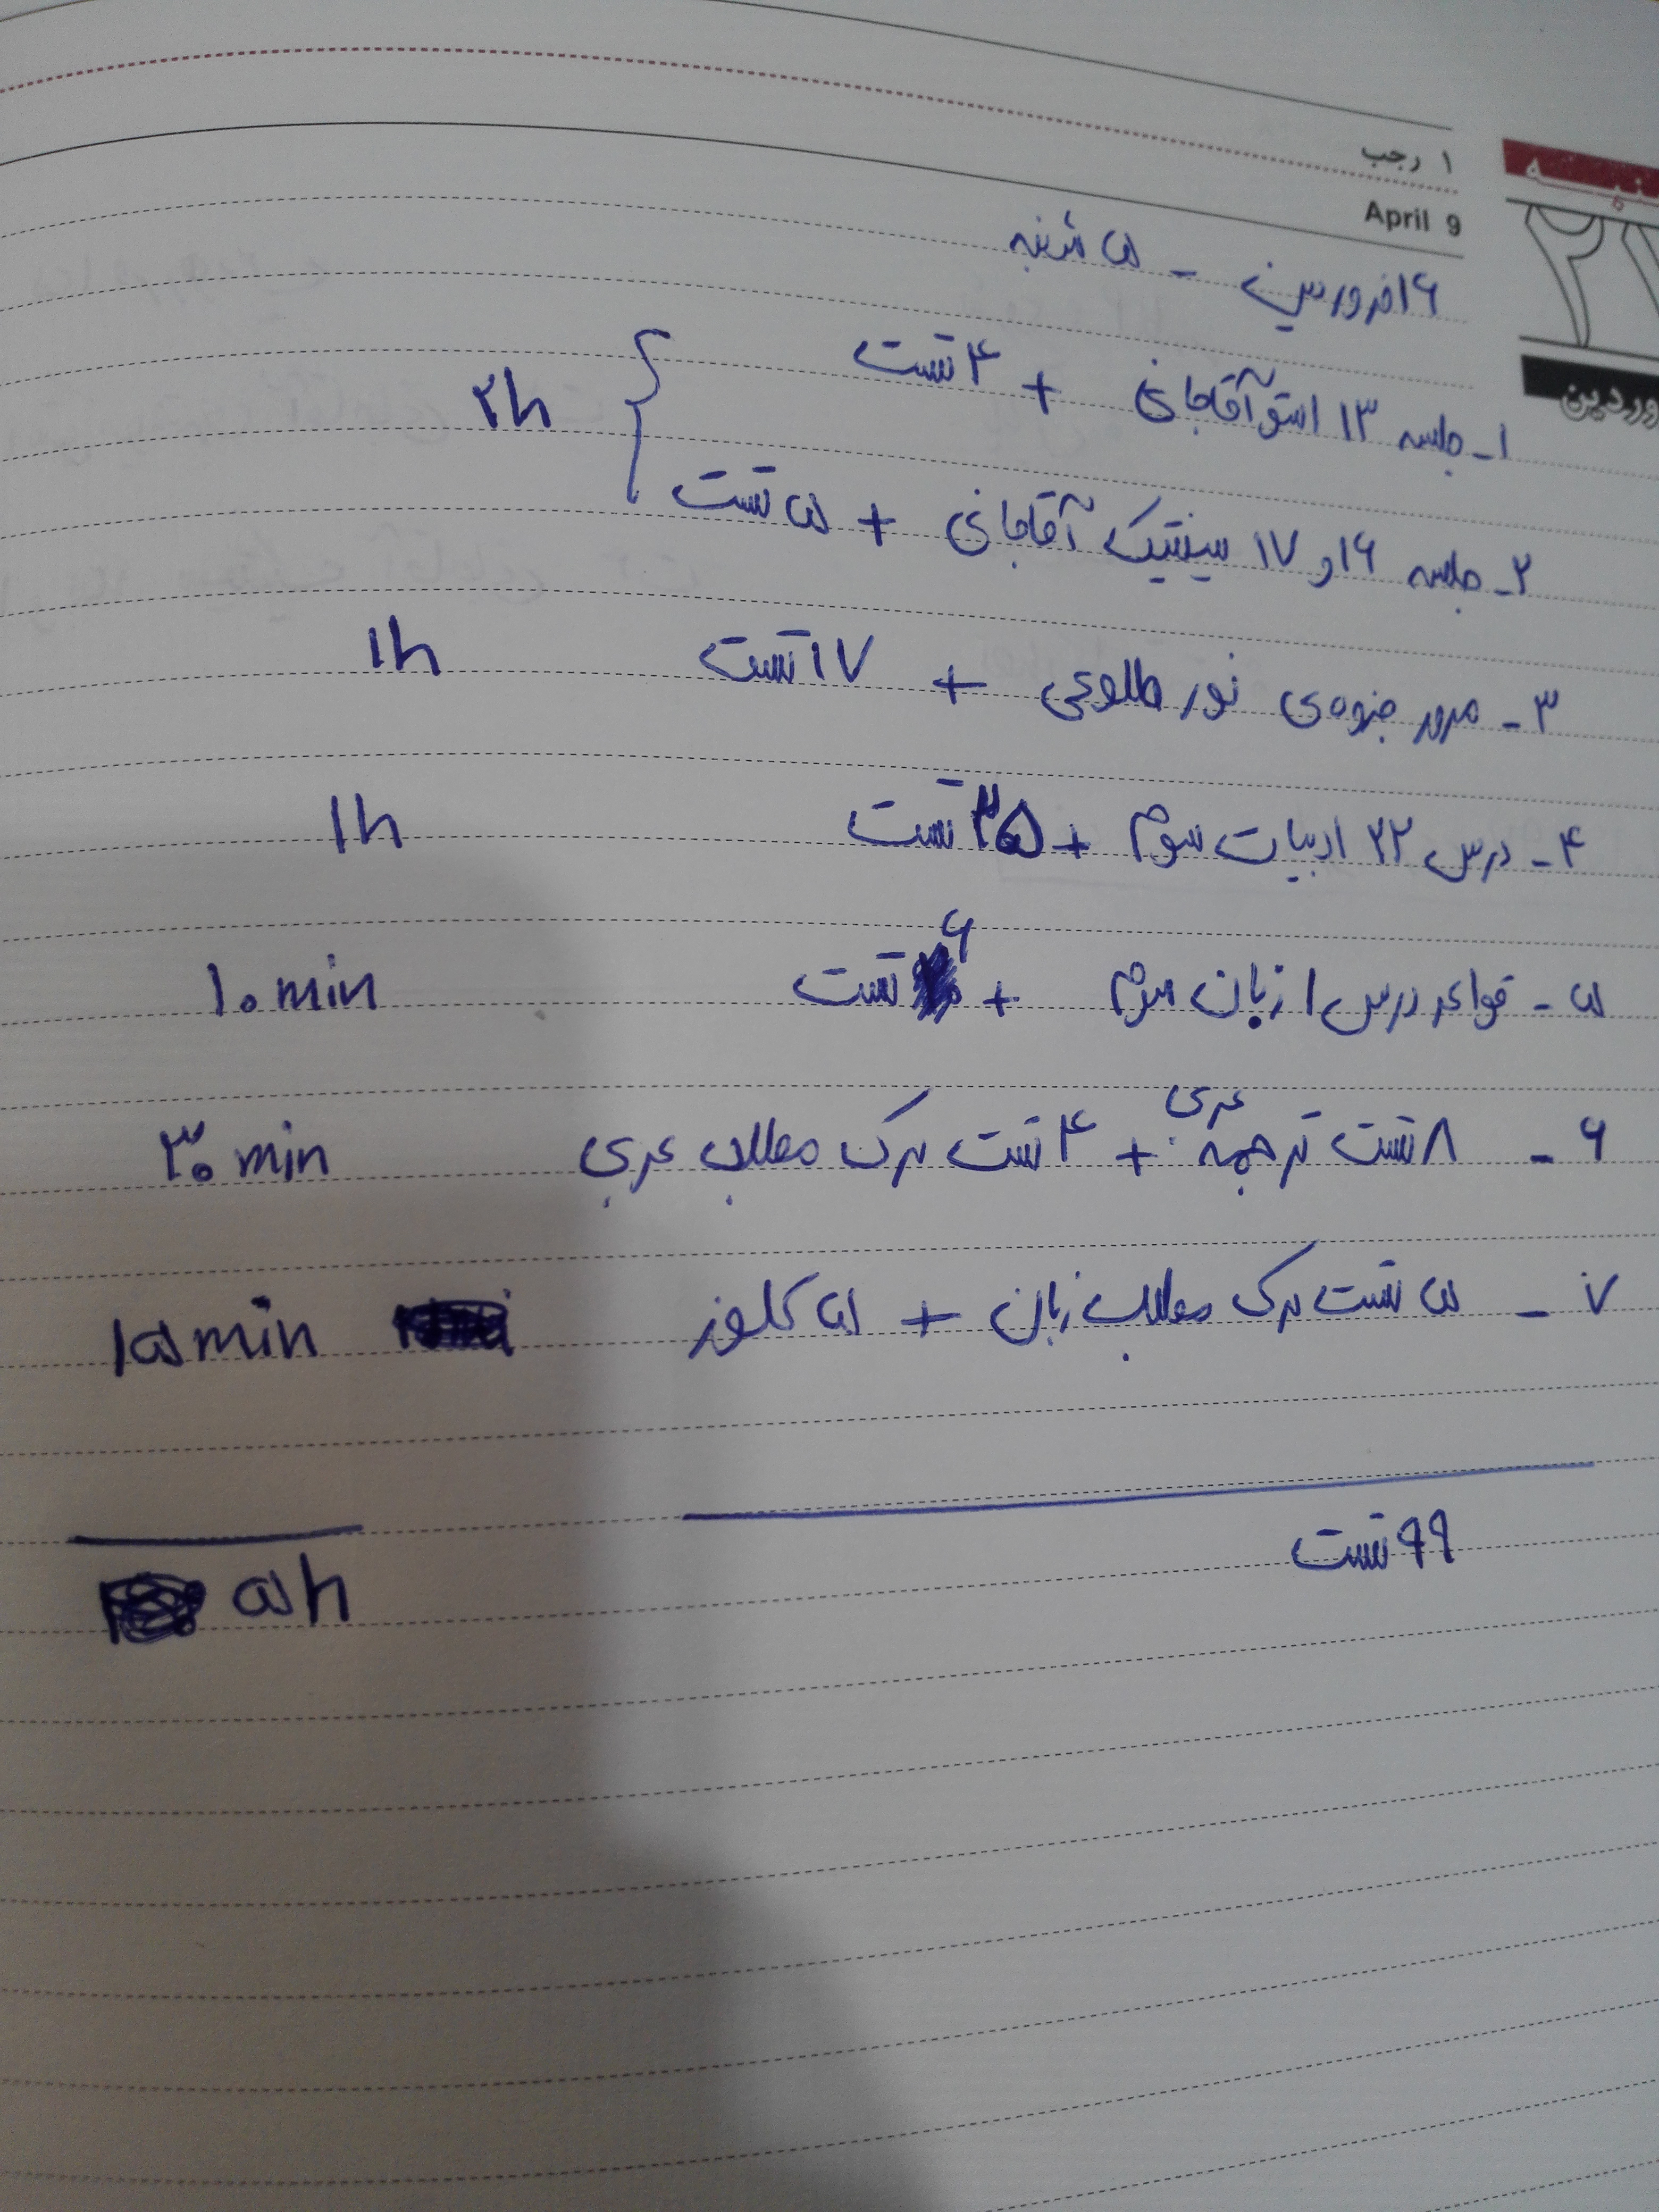 ۱ رجب
April 9
۲۱
وردین
۱۶ فروردین - ۵ شنبه
۱- جلسه ۱۳ استو آقاجانی + ۴ تست
۲h
۲- جلسه ۱۶ و ۱۷ سینتیک آقاجانی + ۵ تست
۳- مرور جزوه‌ی نور طلوعی + ۱۷ تست ۱h
۴- درس ۲۲ ادبیات سوم + ۳۵ تست ۱h
۵- قواعد درس ۱ زبان سوم + ۶ تست ۱۰ min
۶- ۸ تست ترجمه عربی + ۴ تست درک مطلب عربی ۳۰ min
۷- ۵ تست درک مطلب زبان + ۵ کلوز ۱۵ min
۹۹ تست
۵h